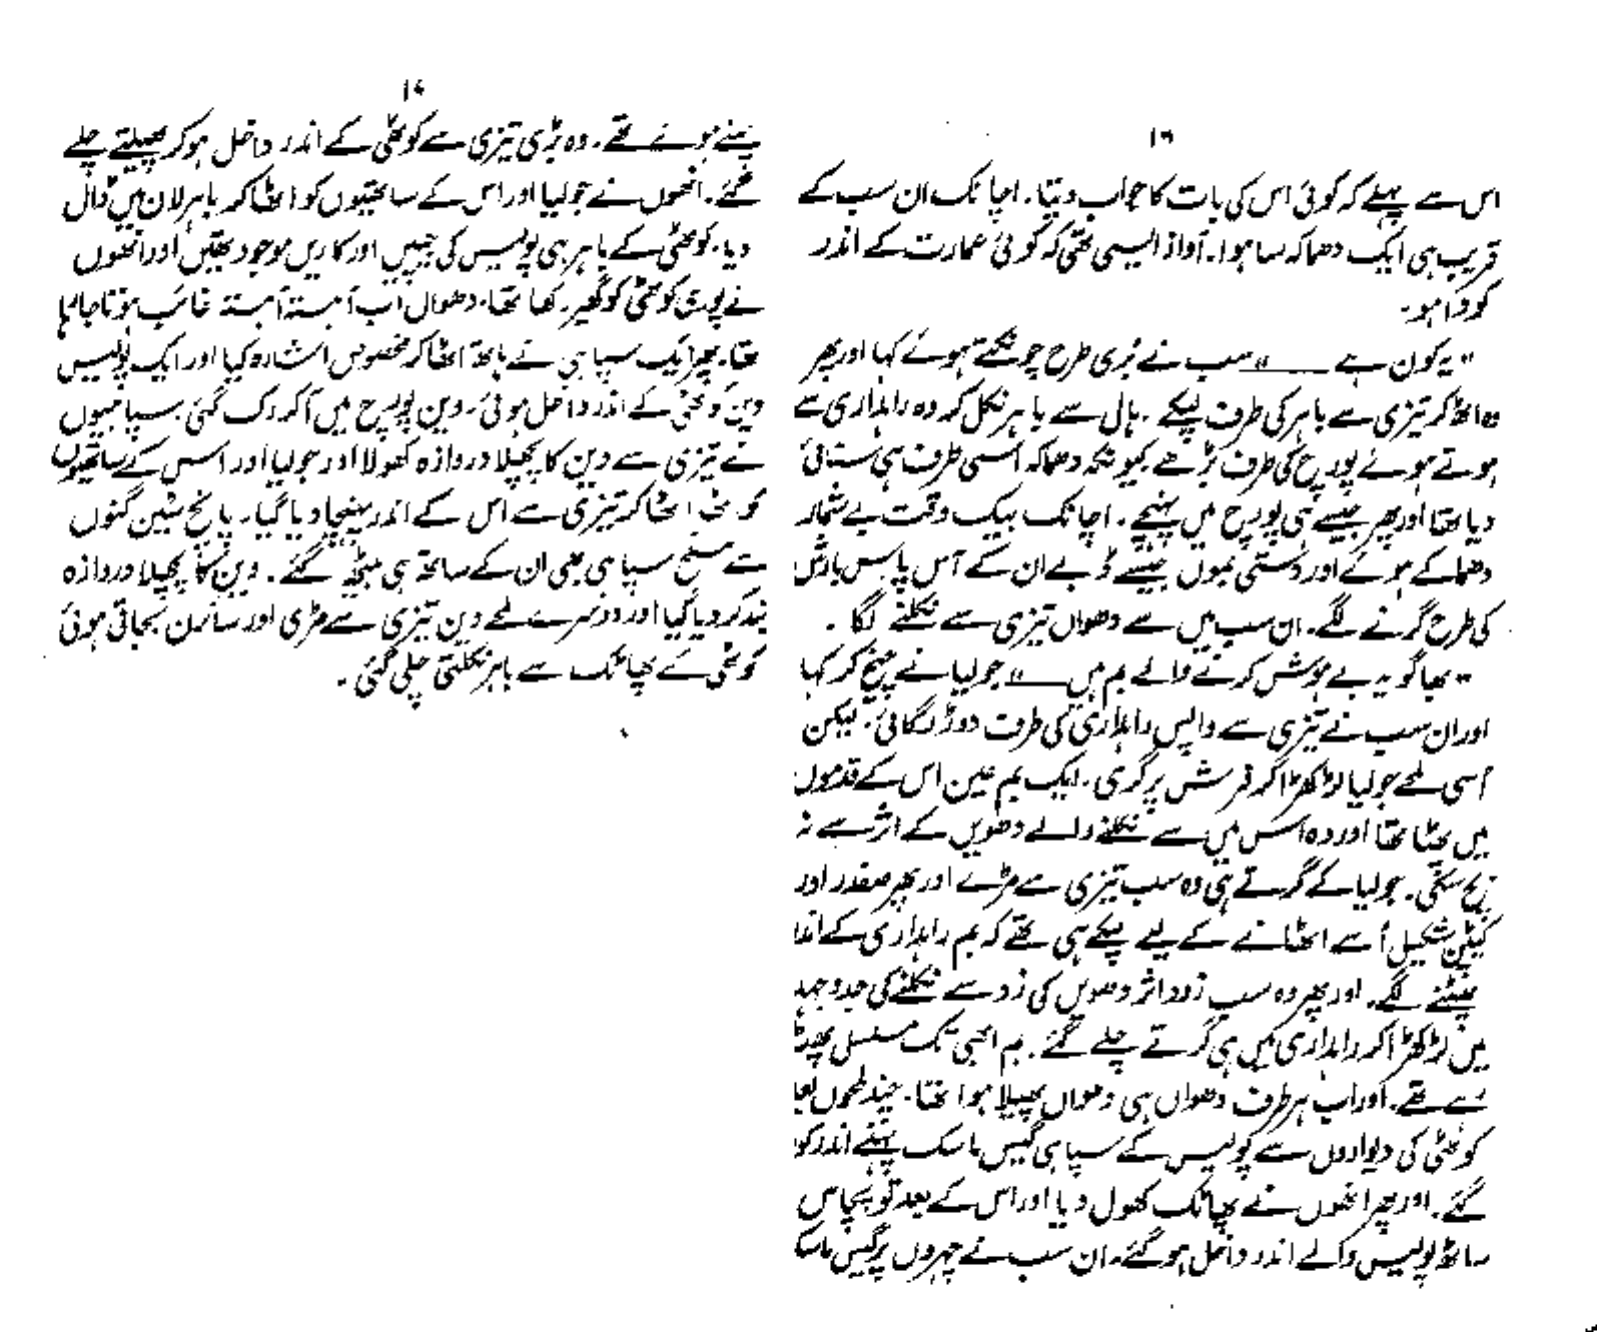 ۱۶
اس سے پہلے کہ کوئی اس کی بات کا جواب دیتا۔ اچانک ان سب کے
قریب ہی ایک دھماکہ سا ہوا۔ آواز ایسی تھی کہ کوئی عمارت کے اندر
کودا ہو۔
"یہ کون ہے ــــــ" سب نے بُری طرح چونکتے ہوئے کہا اور پھر
وہ اٹھ کر تیزی سے باہر کی طرف لپکے۔ ہال سے باہر نکل کر وہ راہداری سے
ہوتے ہوئے پورچ کی طرف بڑھے کیونکہ دھماکہ اسی طرف ہی سنائی
دیا تھا اور پھر جیسے ہی پورچ میں پہنچے۔ اچانک بیک وقت بے شمار
دھماکے ہوئے اور دستی بموں جیسے ڈبے ان کے آس پاس بارش
کی طرح گرنے لگے۔ ان سب میں سے دھواں تیزی سے نکلنے لگا۔
"بھاگو یہ بے ہوش کرنے والے بم ہیں ـــ" جولیا نے چیخ کر کہا
اور ان سب نے تیزی سے واپس راہداری کی طرف دوڑ لگائی۔ لیکن
اُسی لمحے جولیا لڑکھڑا کر فرش پر گری۔ ایک بم عین اس کے قدموں
میں پھٹا تھا اور وہ اس میں سے نکلنے والے دھویں کے اثر سے نہ
بچ سکی۔ جولیا کے گرتے ہی وہ سب تیزی سے مڑے اور پھر صفدر اور
کیپٹن شکیل اُسے اٹھانے کے لیے لپکے ہی تھے کہ بم راہداری کے اندر
پھٹنے لگے۔ اور پھر وہ سب زود اثر دھویں کی زد سے نکلنے کی جدوجہد
میں لڑکھڑا کر راہداری میں ہی گرتے چلے گئے۔ بم ابھی تک مسلسل پھٹ
رہے تھے۔ اور اب ہر طرف دھواں ہی دھواں پھیلا ہوا تھا۔ چند لمحوں بعد
کوٹھی کی دیواروں سے پولیس کے سپاہی گیس ماسک پہنے اندر کود
گئے۔ اور پھر انھوں نے پھاٹک کھول دیا اور اس کے بعد تو پچاس
ساٹھ پولیس والے اندر داخل ہو گئے۔ ان سب نے چہروں پر گیس ماسک
۱۷
پہنے ہوئے تھے۔ وہ بڑی تیزی سے کوٹھی کے اندر داخل ہو کر پھیلتے چلے
گئے۔ انھوں نے جولیا اور اس کے ساتھیوں کو اٹھا کر باہر لان میں ڈال
دیا۔ کوٹھی کے باہر ہی پولیس کی جیپیں اور کاریں موجود تھیں اور انھوں
نے پوری کوٹھی کو گھیر رکھا تھا۔ دھواں اب آہستہ آہستہ غائب ہوتا جا رہا
تھا۔ پھر ایک سپاہی نے ہاتھ اٹھا کر مخصوص اشارہ کیا اور ایک پولیس
وین کوٹھی کے اندر داخل ہوئی۔ وین پورچ میں آ کر رک گئی۔ سپاہیوں
نے تیزی سے وین کا پچھلا دروازہ کھولا اور جولیا اور اس کے ساتھیوں
کو اٹھا اٹھا کر تیزی سے اس کے اندر پہنچا دیا گیا۔ پانچ مشین گنوں
سے مسلح سپاہی بھی ان کے ساتھ ہی بیٹھ گئے۔ وین کا پچھلا دروازہ
بند کر دیا گیا اور دوسرے لمحے وین تیزی سے مڑی اور سائرن بجاتی ہوئی
کوٹھی کے پھاٹک سے باہر نکلتی چلی گئی۔